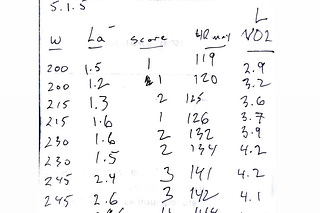 5.1.5
L
W La⁻ score HR max VO2
200 1.5 1 119 2.9
200 1.2 1 120 3.2
215 1.3 2 125 3.6
215 1.6 1 126 3.7
230 1.6 2 132 3.9
230 1.5 2 134 4.2
245 2.4 3 141 4.2
245 2.6 3 142 4.1